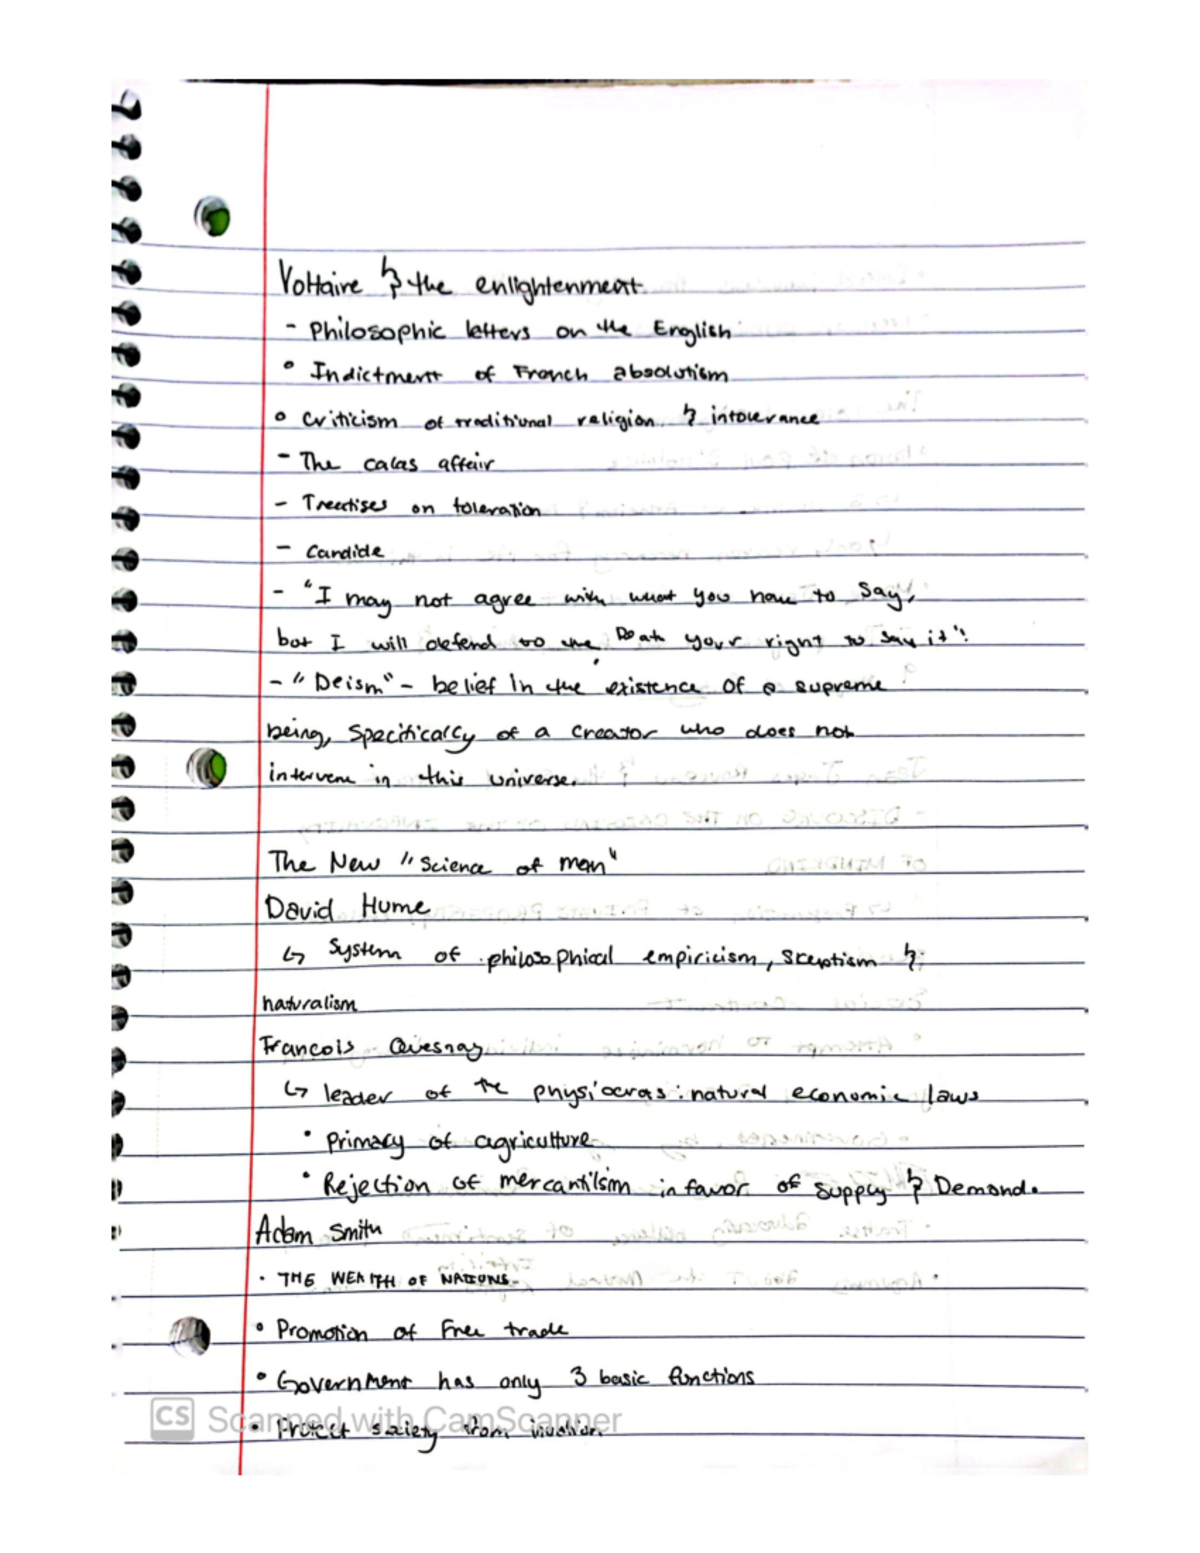 Voltaire & the enlightenment
- Philosophic letters on the English
• Indictment of French absolutism
• Criticism of traditional religion & intolerance
- The calas affair
- Treatises on toleration
- Candide
- "I may not agree with what you have to say,
but I will defend to the Death your right to say it".
- "Deism" - belief in the existence of a supreme
being, specifically of a creator who does not
intervene in this universe.
The New "Science of man"
David Hume
↳ System of philosophical empiricism, skeptism &
naturalism
Francois Quesnay
↳ leader of the physiocras: natural economic laws
• primacy of agriculture
• Rejection of mercantilsim in favor of supply & Demand.
Adam Smith
• THE WEALTH OF NATIONS.
• Promotion of Free trade
• Government has only 3 basic functions
• Protect society from invasion
CS Scanned with CamScanner